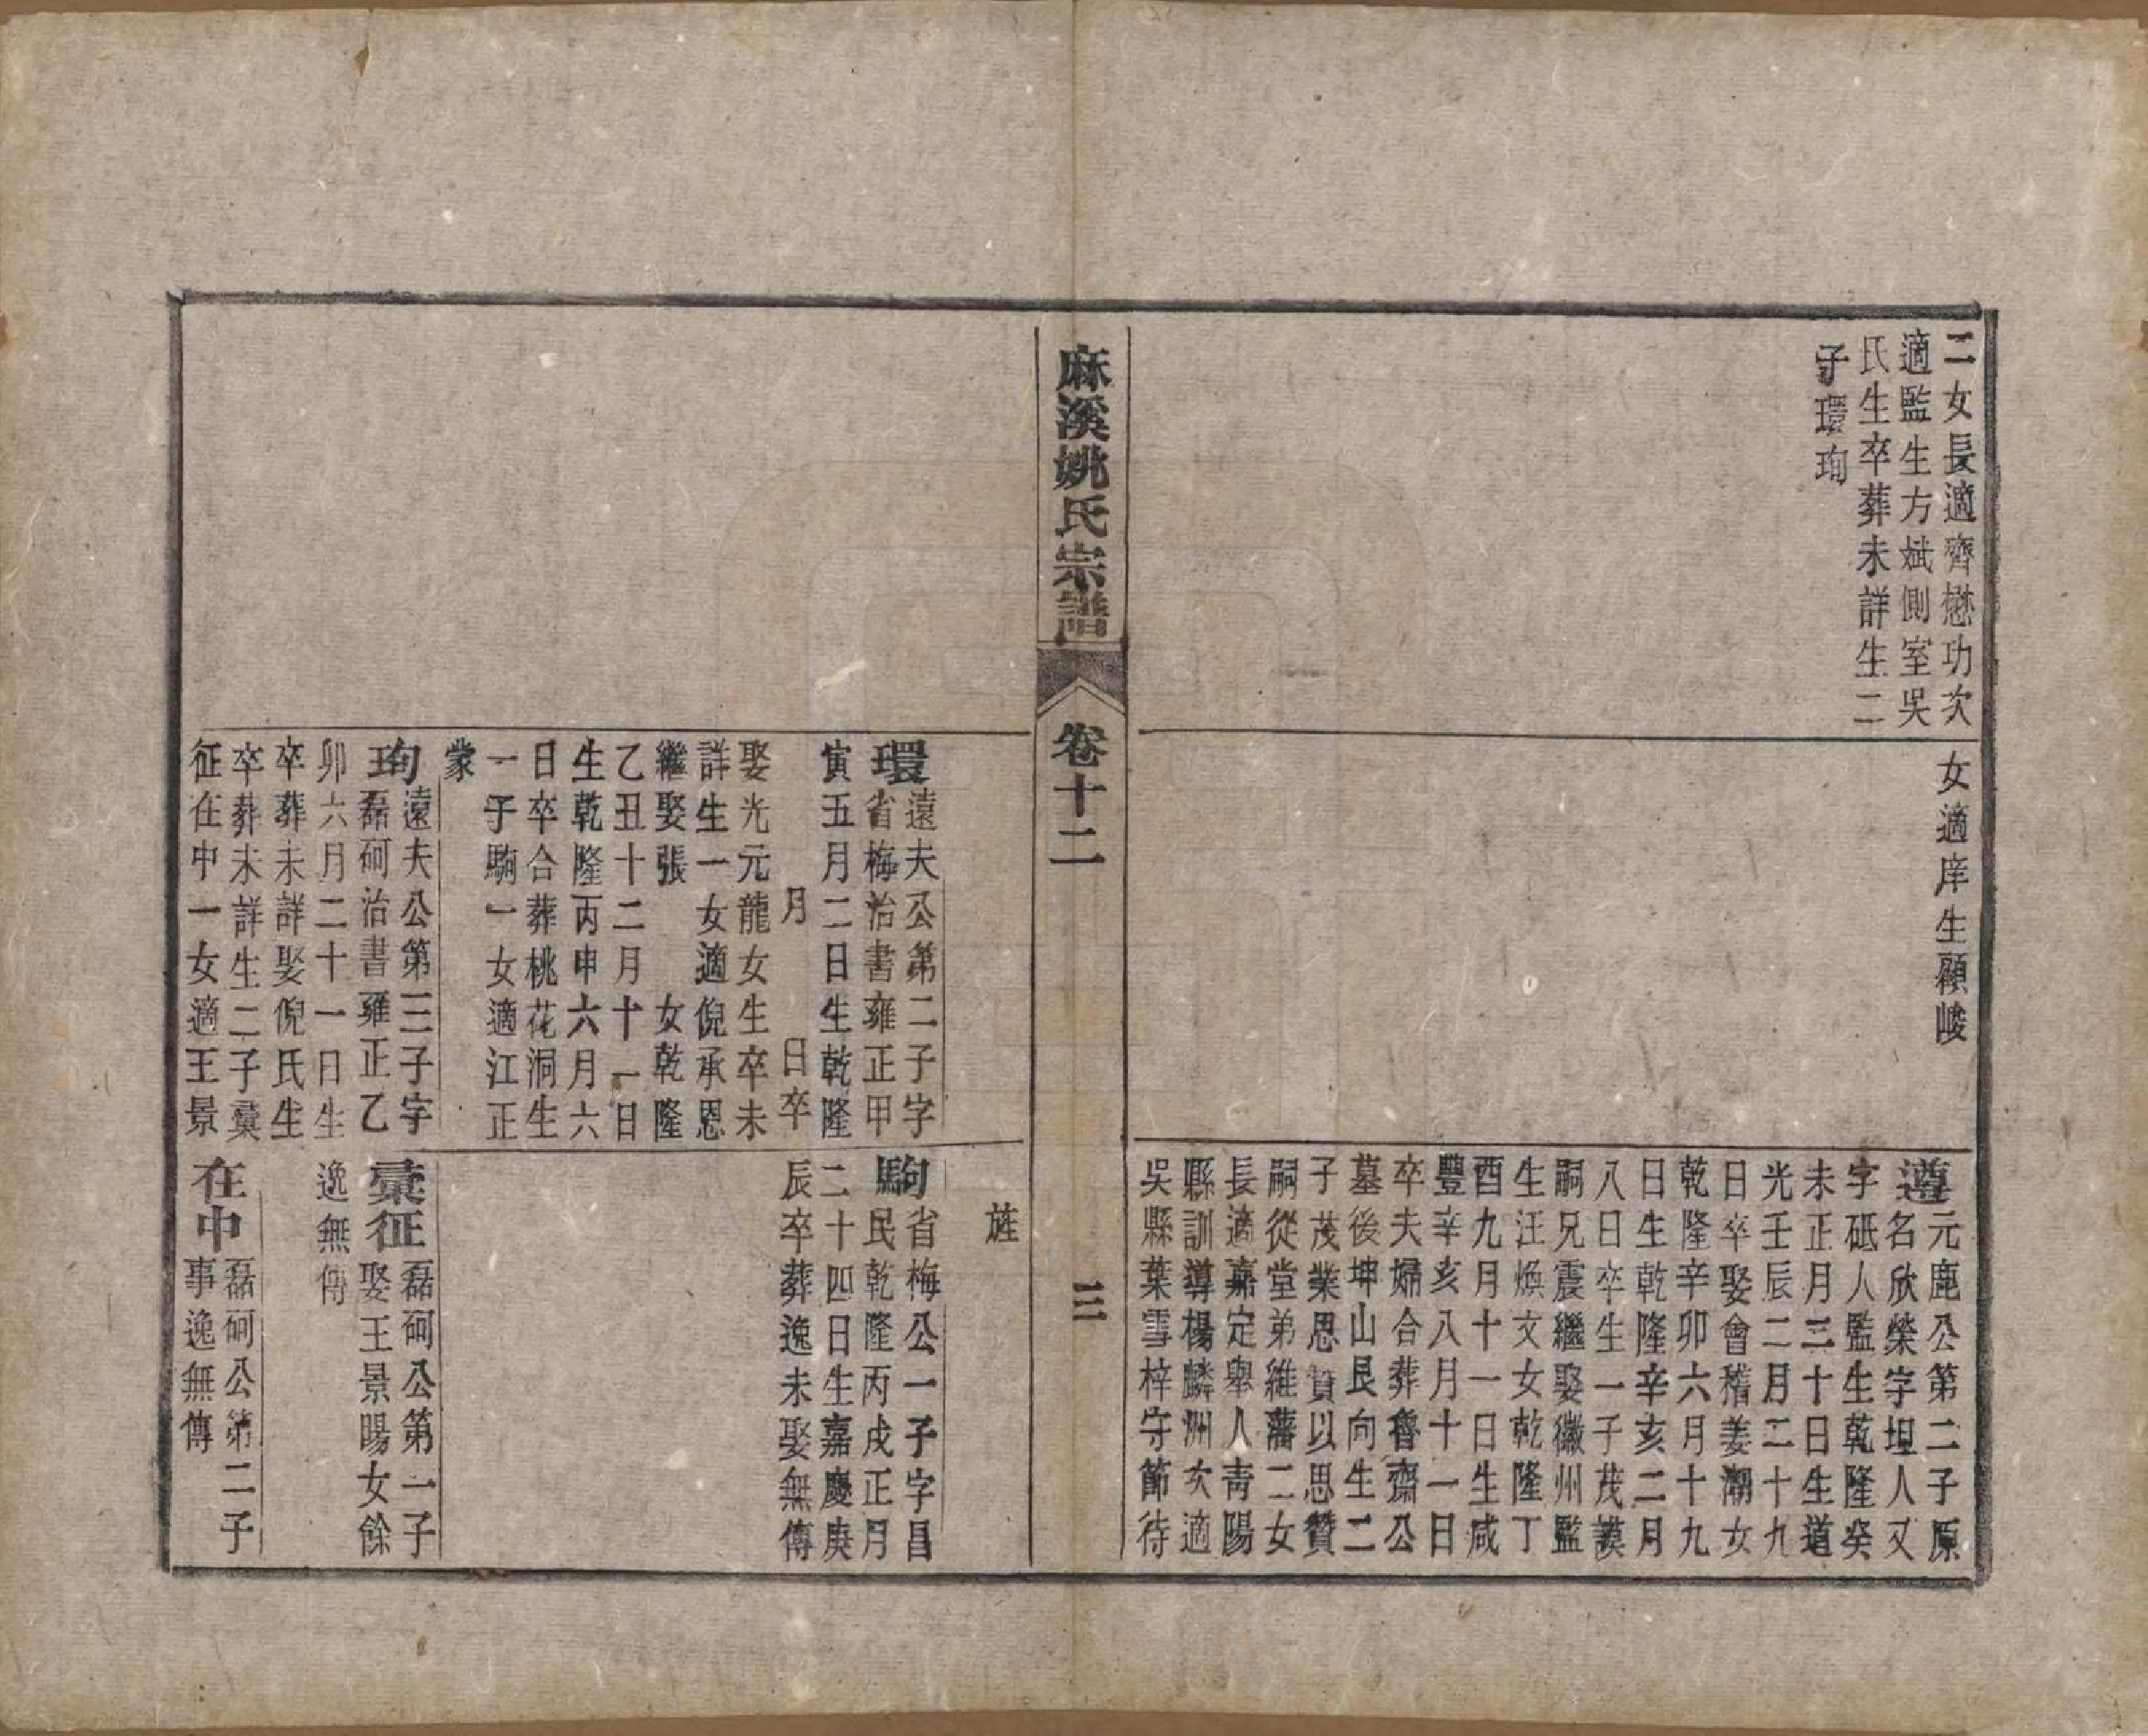 二女長適齊懋功次
適監生方斌側室吳
氏生卒葬未詳生二
子環珣
女適庠生顧峻
遵元鹿公第二子原
名欣榮字坦人又
字砥人監生乾隆癸
未正月三十日生道
光壬辰二月二十九
日卒娶會稽姜潮女
乾隆辛卯六月十九
日生乾隆辛亥二月
八日卒生一子茂謨
嗣兄震繼娶徽州監
生汪煥文女乾隆丁
酉九月十一日生咸
豐辛亥八月十一日
卒夫婦合葬魯齋公
墓後坤山艮向生二
子茂業思贊以思贊
嗣從堂弟維藩二女
長適嘉定舉人青陽
縣訓導楊麟洲次適
吳縣葉雪梓守節待
麻溪姚氏宗譜
卷十二
三
旌
環遠夫公第二子字
省梅治書雍正甲
寅五月二日生乾隆
月 日卒
娶光元龍女生卒未
詳生一女適倪承恩
繼娶張 女乾隆
乙丑十二月十一日
生乾隆丙申六月六
日卒合葬桃花洞生
一子駒一女適江正
蒙
駒省梅公一子字昌
民乾隆丙戌正月
二十四日生嘉慶庚
辰卒葬逸未娶無傳
珣遠夫公第三子字
磊砢治書雍正乙
卯六月二十一日生
卒葬未詳娶倪氏生
卒葬未詳生二子彙
征在中一女適王景
彙征磊砢公第一子
娶王景暘女餘
逸無傳
在中磊砢公第二子
事逸無傳